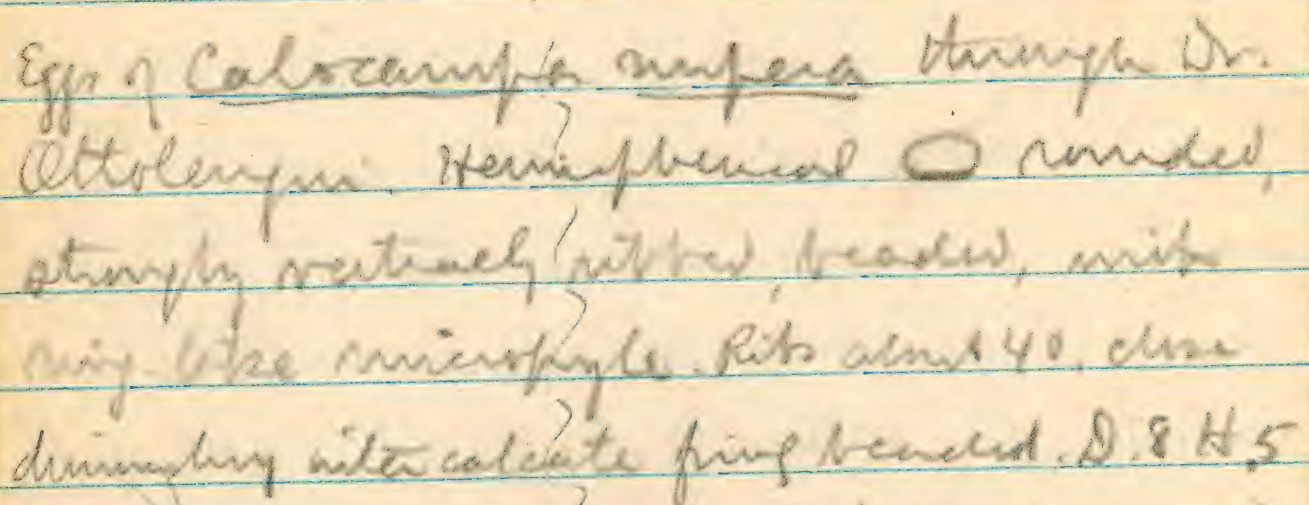 Eggs of Calocampa nupera through Dr.
Ottolengui. Hemispherical rounded,
strongly vertically ribbed, beaded, with
ring-like micropyle. Ribs about 40, close
intercalate finely beaded. D .8 H .5